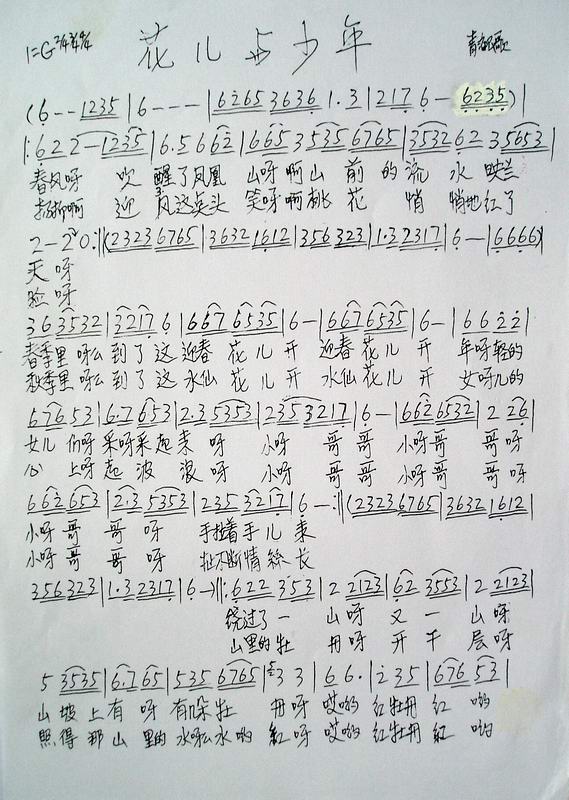 花儿与少年
1=G 2/4 3/4 4/4
(6 - - 1235 | 6 - - - | 6265 3636 | 1·3 | 217 6 - 6235) |
|: 622 - 1235 | 6·5 662 | 665 3 535 6765 | 3532 62 3 5653 |
春风呀 吹 醒了凤凰 山呀啊山 前 的流 水
迎 风 点头 笑呀啊桃 花 悄 悄地红了
2 - 20 :|| (2323 6765 | 3632 1612 | 356 323 | 1·3 2317 | 6 - | 6666)
天 呀
脸 呀
36 3532 | 3217 6 | 667 6535 | 6 - | 667 6535 | 6 - | 66 22 |
春季里 呀么 到了 这 迎春 花 儿 开 迎春 花 儿 开 年呀轻的
秋季里 呀么 到了 这 水仙 花 儿 开 水仙 花 儿 开 女呀儿的
676 53 | 6·7 653 | 2·3 5353 | 235 3217 | 6 - | 662 6532 | 2 26 |
女儿 们呀 采呀采起来 呀 小呀 哥 哥 小呀哥 哥 呀
心 上呀 起 波 浪 呀 小呀 哥 哥 小呀哥 哥 呀
662 653 | 2·3 5353 | 235 3217 | 6 - :|| (2323 6765 | 3632 1612 |
小呀 哥 哥 呀 手拉着手 儿 来
小呀 哥 哥 呀 扯不断情 絲 长
356 323 | 1·3 2317 | 6 -) ||: 622 353 | 2 2123 | 62 3553 | 2 2123 |
绕过了一 山呀 又 一 山呀
山里的牡 丹呀 开 千 层呀
5 3535 | 6·7 65 | 535 6765 | 3 3 | 66· | 235 | 676 53 |
山 坡 上有 呀 有朵 牡 丹呀 哎哟 红牡丹 红 哟
照得 那 山 里的 水呀么水哟 紅呀 哎哟 红牡丹 紅 哟